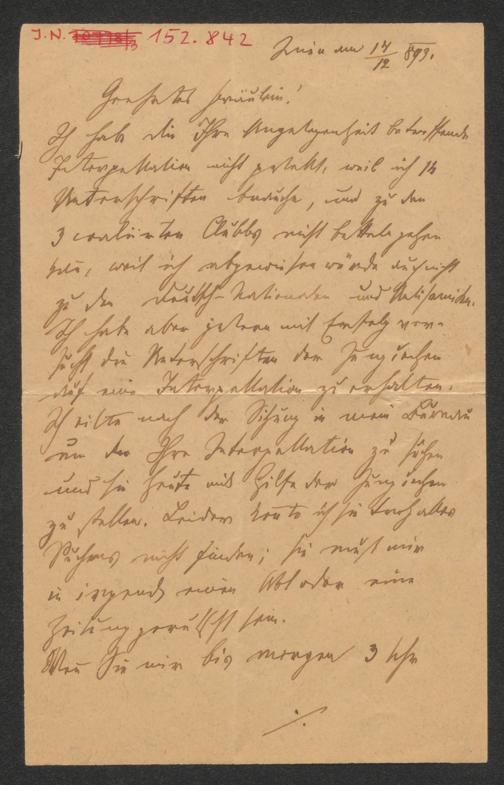 J.N. 152.842
Wien am 14/12 893.
Geehrtes Fräulein!
Ich habe die Ihre Angelegenheit betreffende
Interpellation nicht gestellt, weil ich 14
Unterschriften brauche, und zu den
3 coalirten Clubbs nicht betteln gehen
kann, weil ich abgewiesen würde auch nicht
zu den Deutsch-Nationalen und Antisemiten.
Ich habe aber gestern mit Erfolg ver-
sucht die Unterschriften der Jungčechen
auf eine Interpellation zu erhalten.
Ich eilte nach der Sitzung in mein Bureau
um die Ihre Interpellation zu suchen
und sie heute mit Hilfe der Jungčechen
zu stellen. Leider konnte ich sie trotz alles
Suchens nicht finden; sie muß mir
in irgend einen Akt oder eine
Zeitung gerutscht sein.
Wenn Sie mir bis morgen 3 Uhr
./.